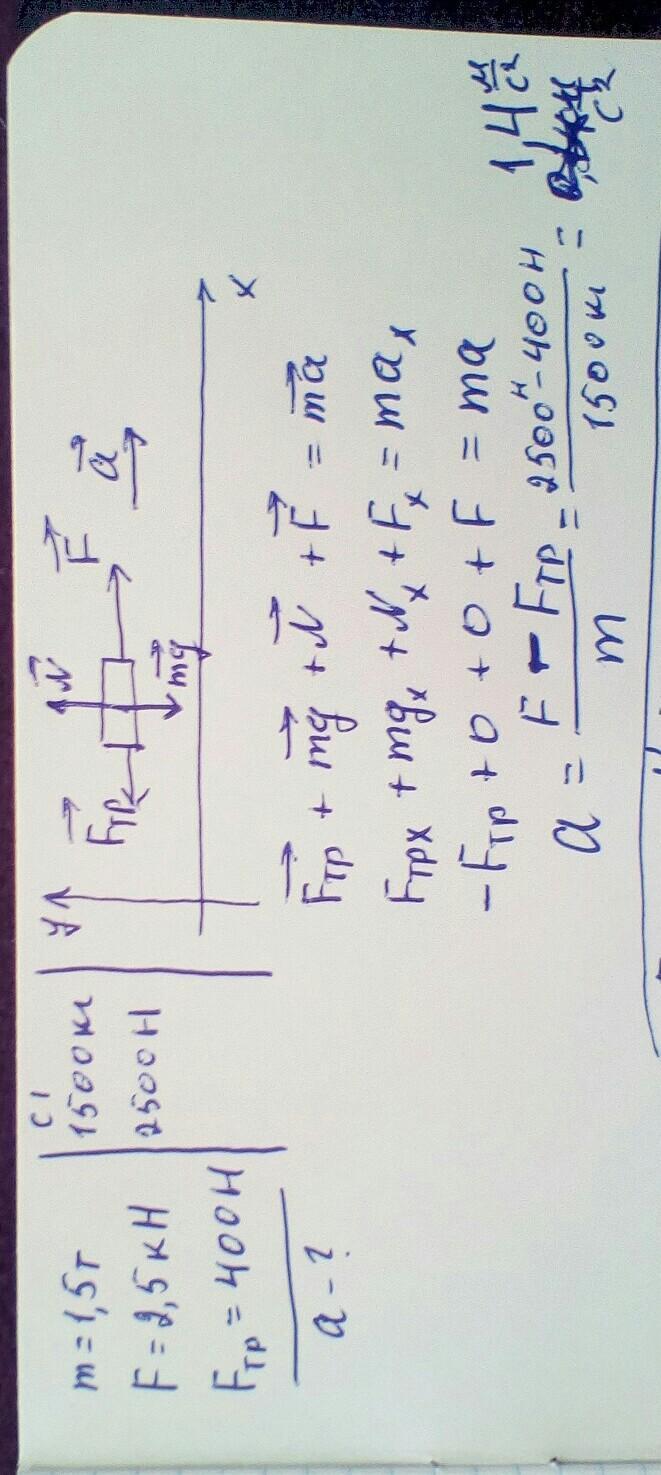 m = 1,5т
F = 2,5 кН
Fтр = 400Н
a - ?
СИ
1500кг
2500Н
y
x
F⃗тр
N⃗
mg⃗
F⃗
a⃗
F⃗тр + mg⃗ + N⃗ + F⃗ = ma⃗
Fтрx + mgx + Nx + Fx = max
-Fтр + 0 + 0 + F = ma
a = (F - Fтр)/m = (2500Н - 400Н)/1500кг = 1,4 м/с²